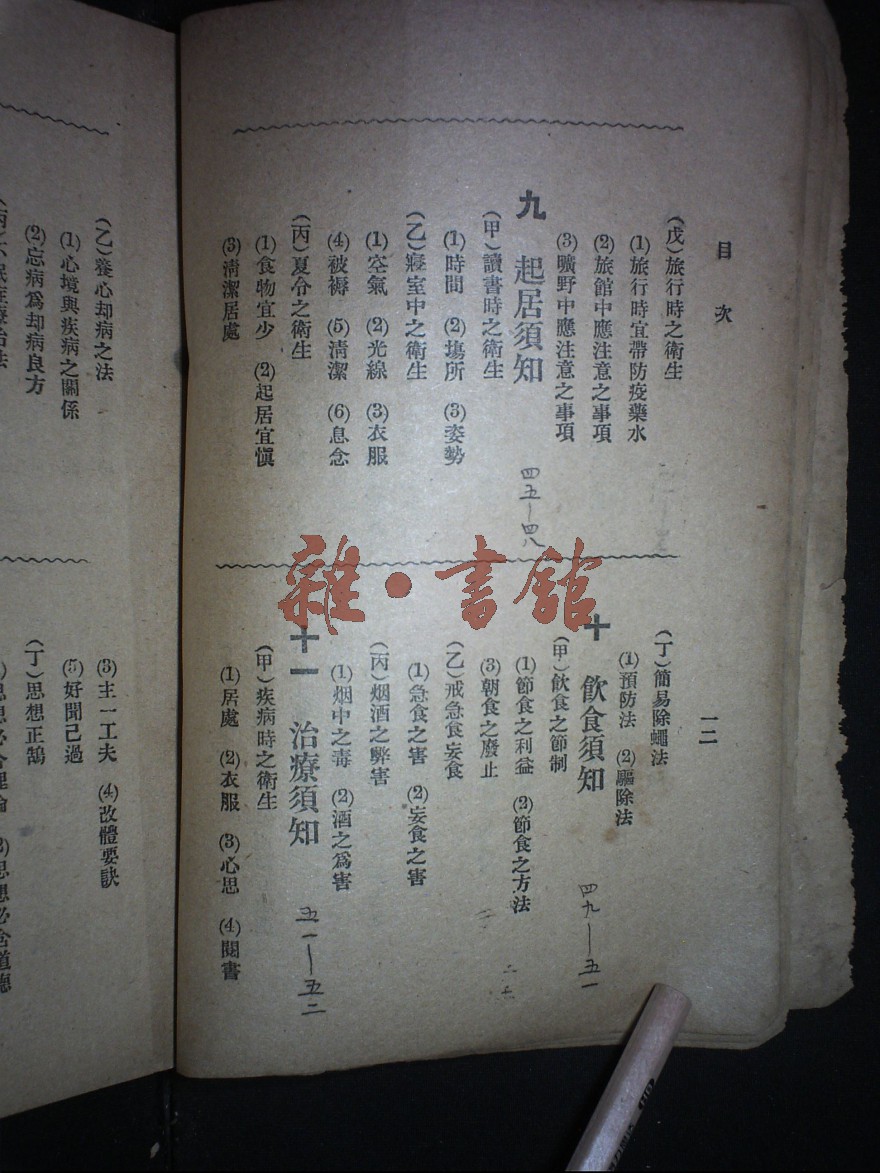 目次
一二
(戊)旅行時之衛生
(1)旅行時宜帶防疫藥水
(2)旅館中應注意之事項
(3)曠野中應注意之事項
九 起居須知 四五—四八
(甲)讀書時之衛生
(1)時間 (2)塲所 (3)姿勢
(乙)寢室中之衛生
(1)空氣 (2)光線 (3)衣服
(4)被褥 (5)清潔 (6)息念
(丙)夏令之衛生
(1)食物宜少 (2)起居宜愼
(3)清潔居處
(丁)簡易除蠅法
(1)預防法 (2)驅除法
十 飲食須知 四九—五一
(甲)飲食之節制
(1)節食之利益 (2)節食之方法
(3)朝食之廢止
(乙)戒急食妄食
(1)急食之害 (2)妄食之害
(丙)烟酒之弊害
(1)烟中之毒 (2)酒之爲害
十一 治療須知 五一—五二
(甲)疾病時之衛生
(1)居處 (2)衣服 (3)心思 (4)閱書
(乙)養心却病之法
(1)心境與疾病之關係
(2)忘病爲却病良方
(3)主一工夫 (4)改體要訣
(5)好聞己過
(丁)思想正鵠
雜·書館